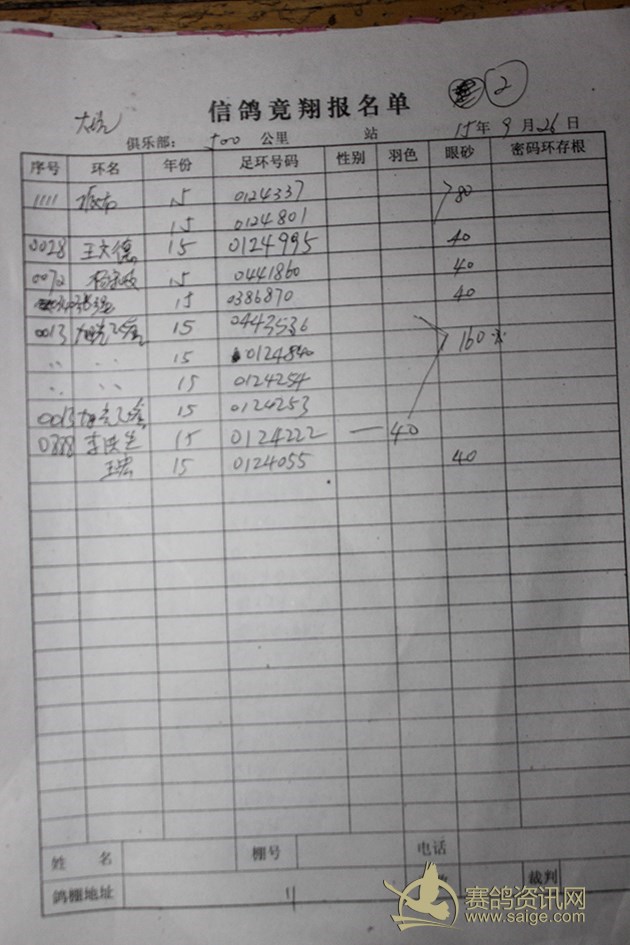 ②
信鸽竞翔报名单
俱乐部: 500 公里 站 15年 9月 26日
序号 环名 年份 足环号码 性别 羽色 眼砂 密码环存根
1111 15 0124337 80
15 0124801
0028 王文德 15 0124995 40
0072 15 0441860 40
15 0386870 40
0013 15 0443536 160
〃 〃 15 0124840
〃 〃 15 0124254
0013 15 0124253
0388 李 15 0124222 — 40
王宏 15 0124055 40
姓 名 棚号 电话
鸽棚地址 11 裁判
赛鸽资讯网
www.saige.com